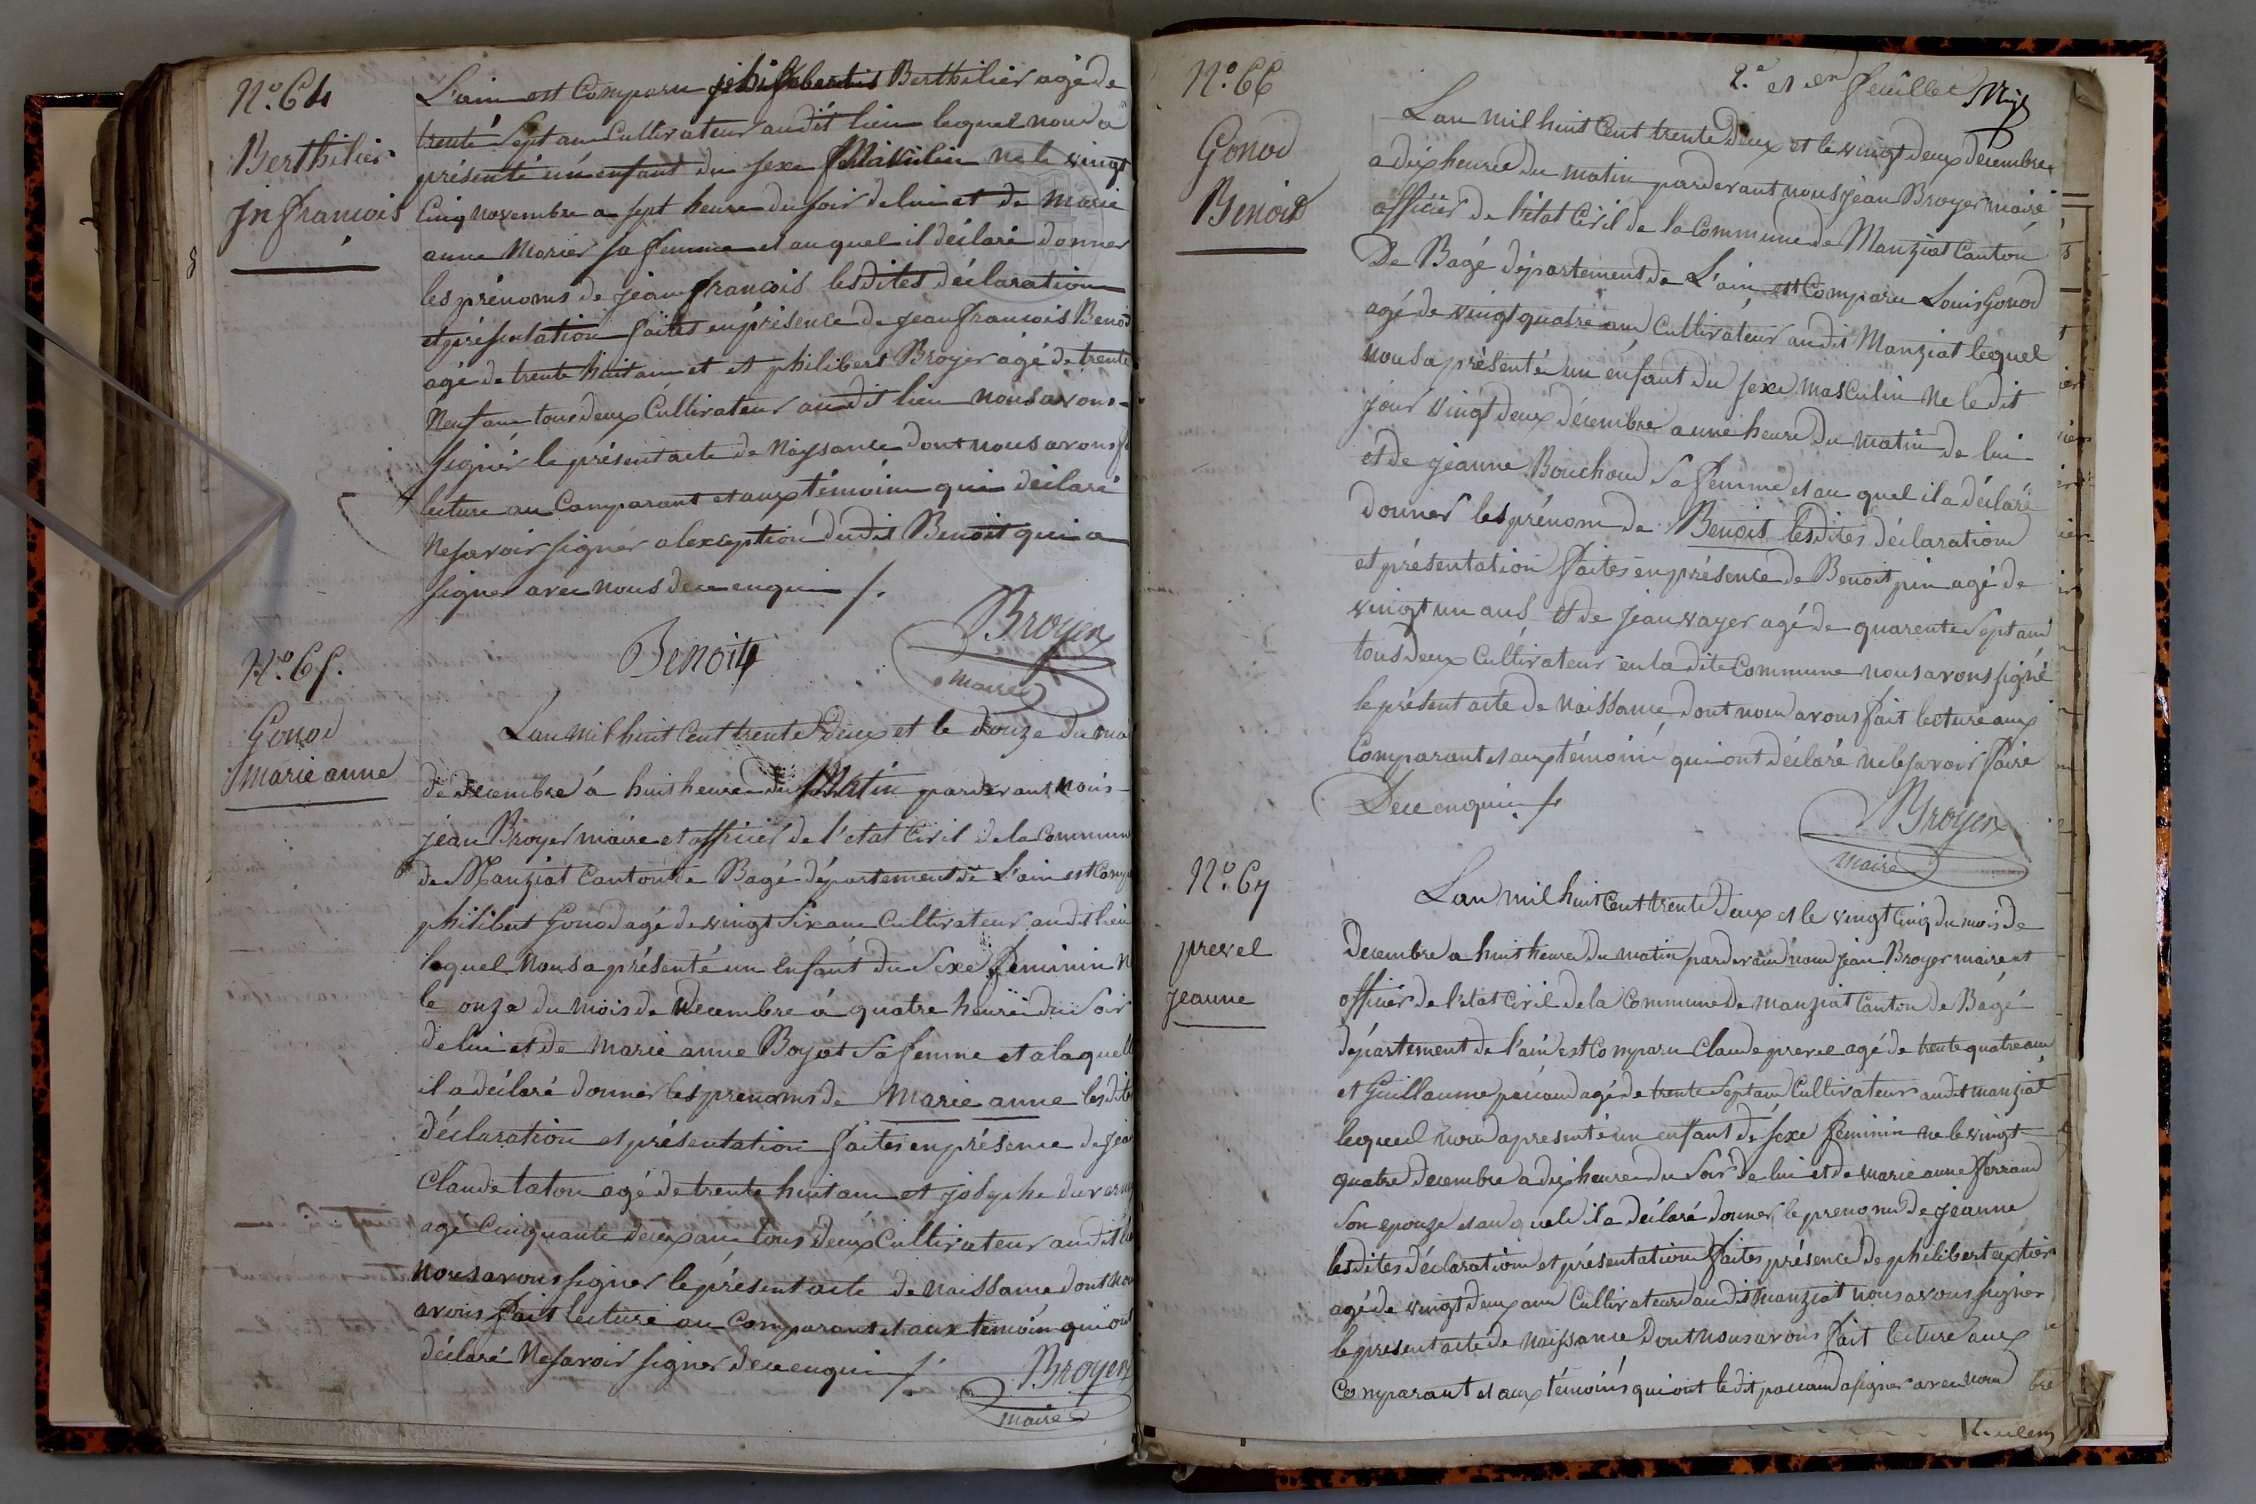 N.o 64
Berthilier
jn francois
L'ain est Comparu Berthilier agé de
trente Sept ans Cultivateur au dit lieu lequel nous a
présenté un enfant du sexe Masculin ne le vingt
Cinq novembre a sept heure du soir de lui et de Marie
anne Morier sa femme et au quel il déclaré donner
les prénoms de jean francois lesdites déclaration
et présentation faites en présence de jean francois Benoit
agé de trente huit ans et et philibert Broyer agé de trente
Neuf ans tous deux Cultivateur au dit lieu nous avons
signér le présent acte de Naissance dont nous avons
lecture au Comparant et aux témoins qui déclaré
Ne savoir signér a lexception dudit Benoit qui a
signer avec nous de ce enquis /.
Benoit
Broyer
maire
N.o 65.
Gonod
Marie anne
Lan mil huit Cent trente Deux et le douze du moi
de decembre á huit heure du Matin pardevant nous
jean Broyer maire et officier de l'etat Civil de la Commune
de Manziat Canton de Bagé département de L'ain est Comp
philibert Gonod agé de vingt Six ans Cultivateur au dit lieu
lequel nous a présenté un enfant du Sexe feminin N
le onze du mois de decembre á quatre heure du Soir
de lui et de Marie anne Boyat Sa femme et a laquell
il a déclaré donner les prenoms de Marie anne lesdite
déclaration et présentation faites en présence de jea
Claude taton agé de trente huit ans et josephe duverney
agé Cinquante deux ans tous deux Cultivateur au dit lieu
Nous avons signer le présent acte de Naissance dont nou
avons fait lecture au Comparant et aux temoin qui ont
déclaré Ne savoir signer de ce enquis /.
Broyer
maire
2.e et en feuillet
N.o 66
Gonod
Benoit
Lan mil huit Cent trente Deux et le vingt deux decembre
a dix heure du matin pardevant nous jean Broyer maire
officier de l'état Civil de la Commune de Manziat Canton
De Bagé département de L'ain est Comparu Louis Gonod
agé de vingt quatre ans Cultivateur au dit Manziat lequel
nous a présenté un enfant du sexe masculin Ne le dit
jour vingt deux décembre a une heure du matin de lui
et de jeanne Bouchoud Sa femme et au quel il a déclaré
donner les prénom de Benoit lesdites déclaration
et présentation faites en présence de Benoit pin agé de
vingt un ans et de jean vayer agé de quarente Sept ans
tous deux Cultivateur en la dite Commune nous avons signé
le présent acte de Naissance dont nous avons fait lecture aux
Comparant et aux témoins qui ont déclaré ne le savoir faire
De ce enquis /.
Broyer
maire
N.o 67
prevel
jeanne
Lan mil huit Cent trente Deux et le vingt Cinq du mois de
Decembre a huit heure du matin pardevant nous jean Broyer maire et
officier de l'etat Civil de la Commune de manziat Canton de Bagé
département de l'ain est Comparu Claude prevel agé de trente quatre ans
et Guillaume pacaud agé de trente Sept ans Cultivateur audit manziat
lequel nous a presenté un enfant de sexe feminin ne le vingt
quatre decembre a dix heure du Soir de lui et de marie anne ferrand
Son epouze et au quele il a déclaré donner le prenom de jeanne
lesdites déclaration et présentation faites présence de philibert
agé de vingt deux ans Cultivateur au dit manziat nous avons signér
le present acte de Naissance Dont nous avons fait lecture aux
Comparant et aux témoins qui ont le dit pacaud a signer avec nous